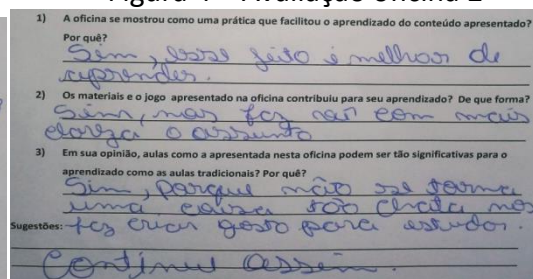 1) A oficina se mostrou como uma prática que facilitou o aprendizado do conteúdo apresentado?
Por quê?
Sim, esse jeito é melhor de
aprender.
2) Os materiais e o jogo apresentado na oficina contribuiu para seu aprendizado? De que forma?
Sim, nos faz ver com mais
clareza o assunto
3) Em sua opinião, aulas como a apresentada nesta oficina podem ser tão significativas para o
aprendizado como as aulas tradicionais? Por quê?
Sim, porque não se torna
uma coisa tão chata nos
Sugestões: faz criar gosto para estudar.
Continue assim.